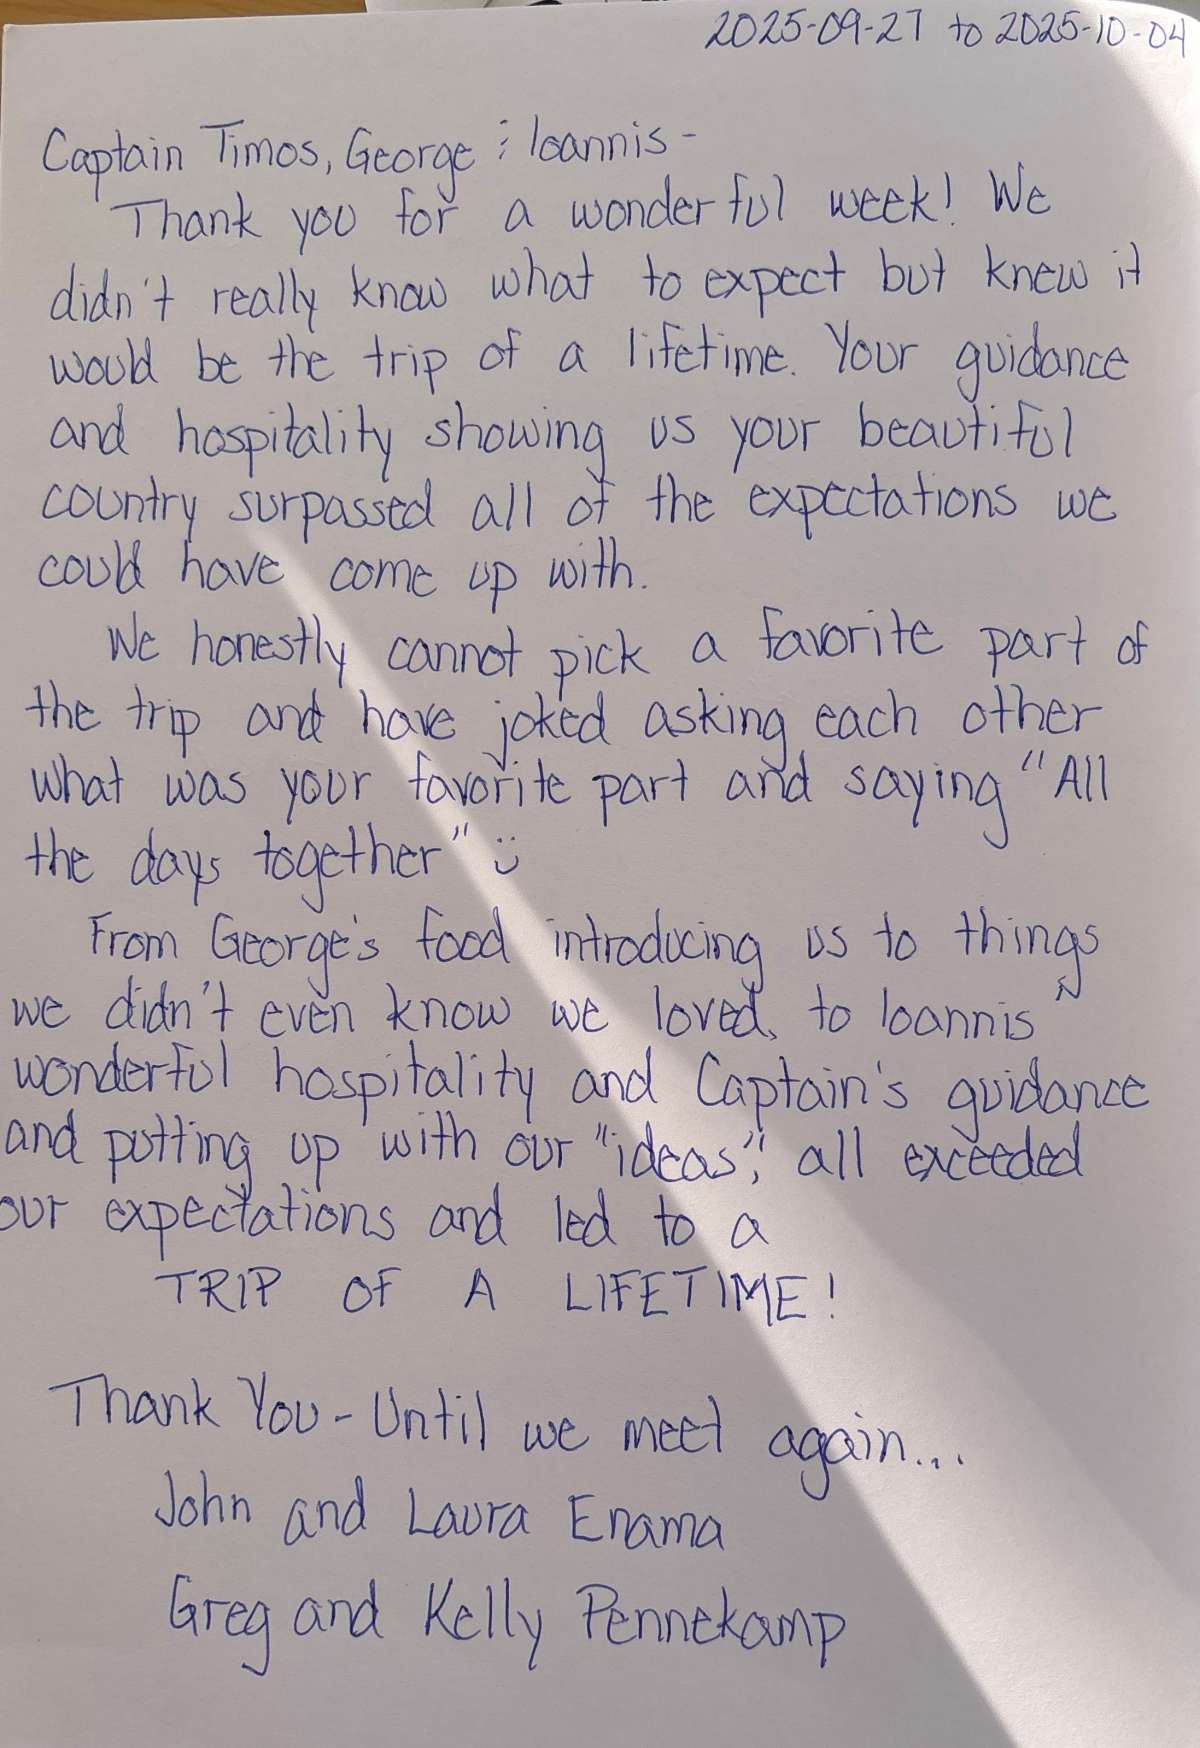 2025-09-27 to 2025-10-04
Captain Timos, George & Ioannis -
Thank you for a wonderful week! We
didn't really know what to expect but knew it
would be the trip of a lifetime. Your guidance
and hospitality showing us your beautiful
country surpassed all of the expectations we
could have come up with.
We honestly cannot pick a favorite part of
the trip and have joked asking each other
what was your favorite part and saying "All
the days together" :)
From George's food introducing us to things
we didn't even know we loved, to Ioannis'
wonderful hospitality and Captain's guidance
and putting up with our "ideas", all exceeded
our expectations and led to a
TRIP OF A LIFETIME!
Thank You - Until we meet again...
John and Laura Enama
Greg and Kelly Pennekamp